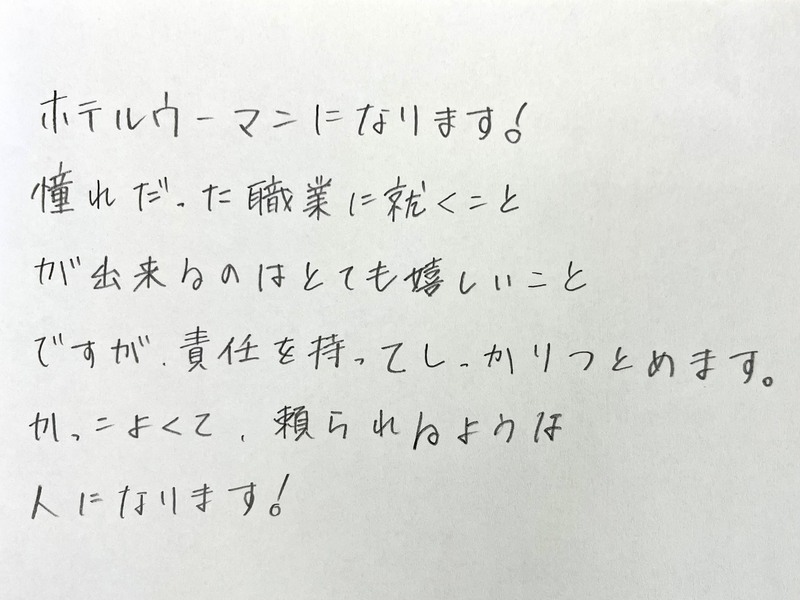 ホテルウーマンになります!
憧れだった職業に就くこと
が出来るのはとても嬉しいこと
ですが、責任を持ってしっかりつとめます。
かっこよくて、頼られるような
人になります!